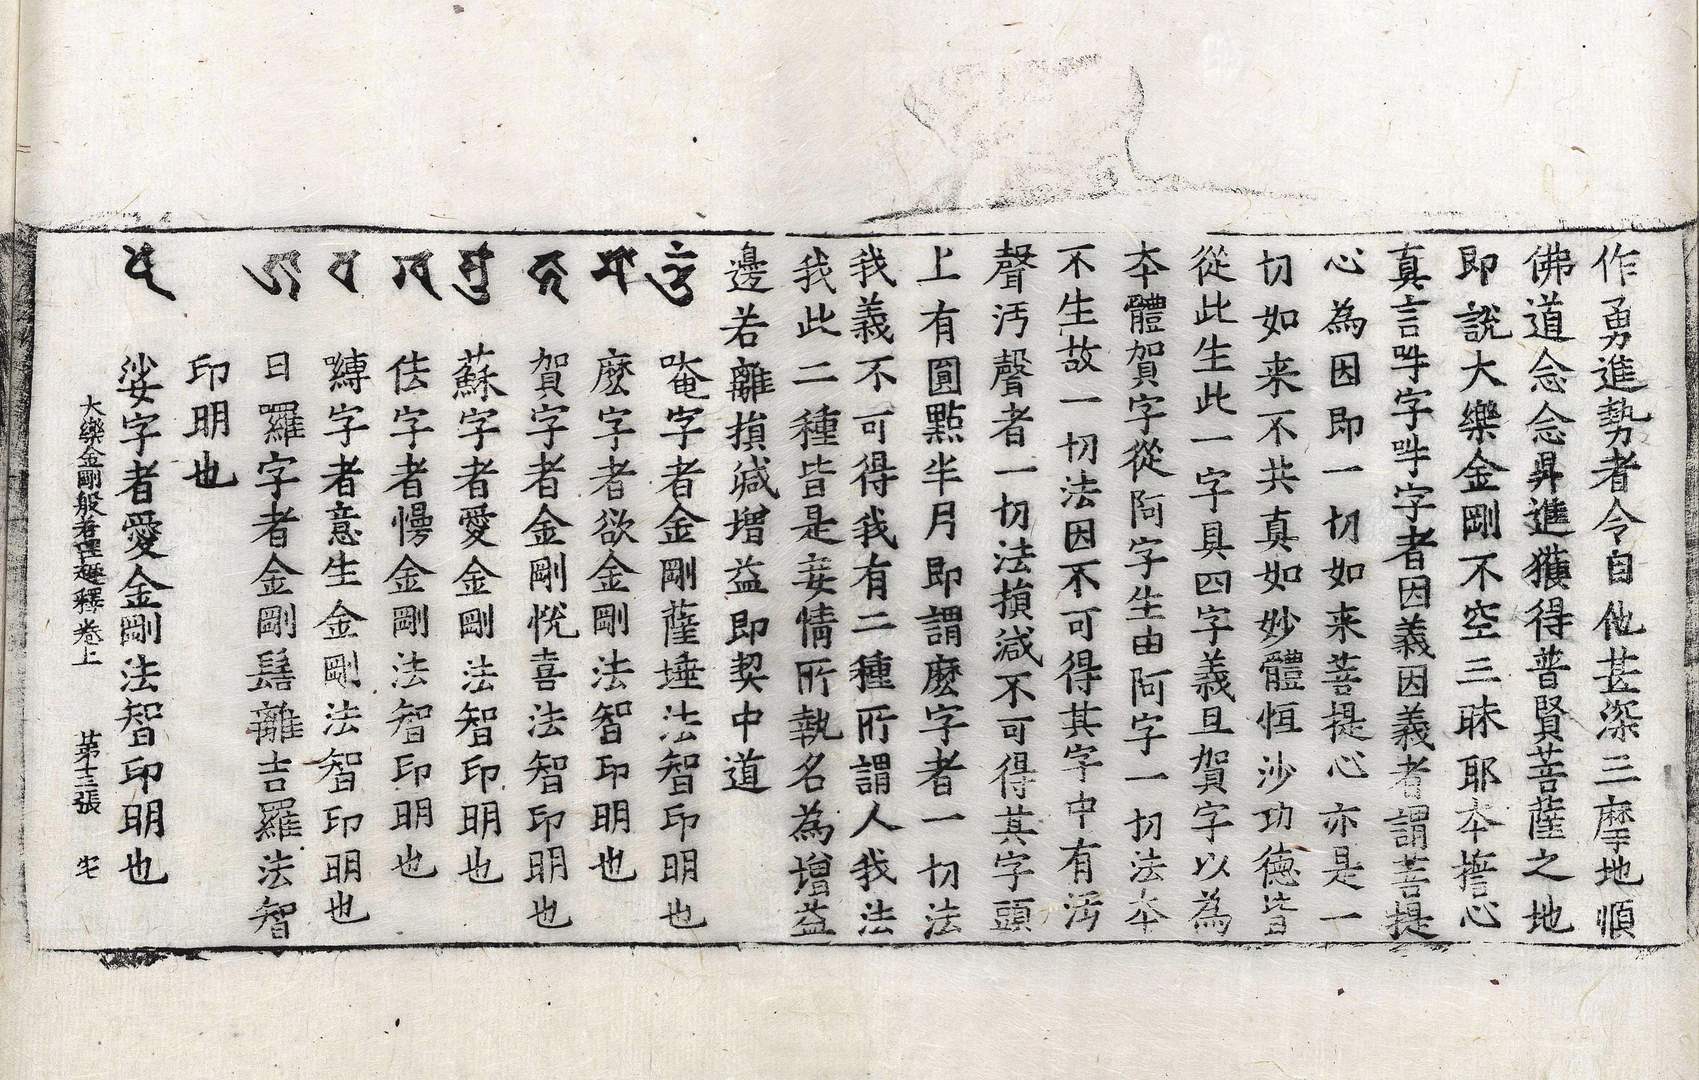 作勇進勢者令自他甚深三摩地順
佛道念念昇進獲得普賢菩薩之地
即說大樂金剛不空三昧耶本擔心
真言吽字吽字者因義因義者謂菩提
心為因即一切如来菩提心亦是一
切如来不共真如妙體恒沙功德皆
從此生此一字具四字義且賀字以為
本體賀字從阿字生由阿字一切法本
不生故一切法因不可得其字中有污
聲污聲者一切法損減不可得其字頭
上有圓點半月即謂麼字者一切法
我義不可得我有二種所謂人我法
我此二種皆是妄情所執名為增益
邊若離損減增益即契中道
唵字者金剛薩埵法智印明也
麼字者欲金剛法智印明也
賀字者金剛悅喜法智印明也
蘇字者愛金剛法智印明也
佉字者慢金剛法智印明也
嚩字者意生金剛法智印明也
日囉字者金剛髻離吉羅法智
印明也
娑字者愛金剛法智印明也
大樂金剛般若理趣釋卷上 第十三張 宅